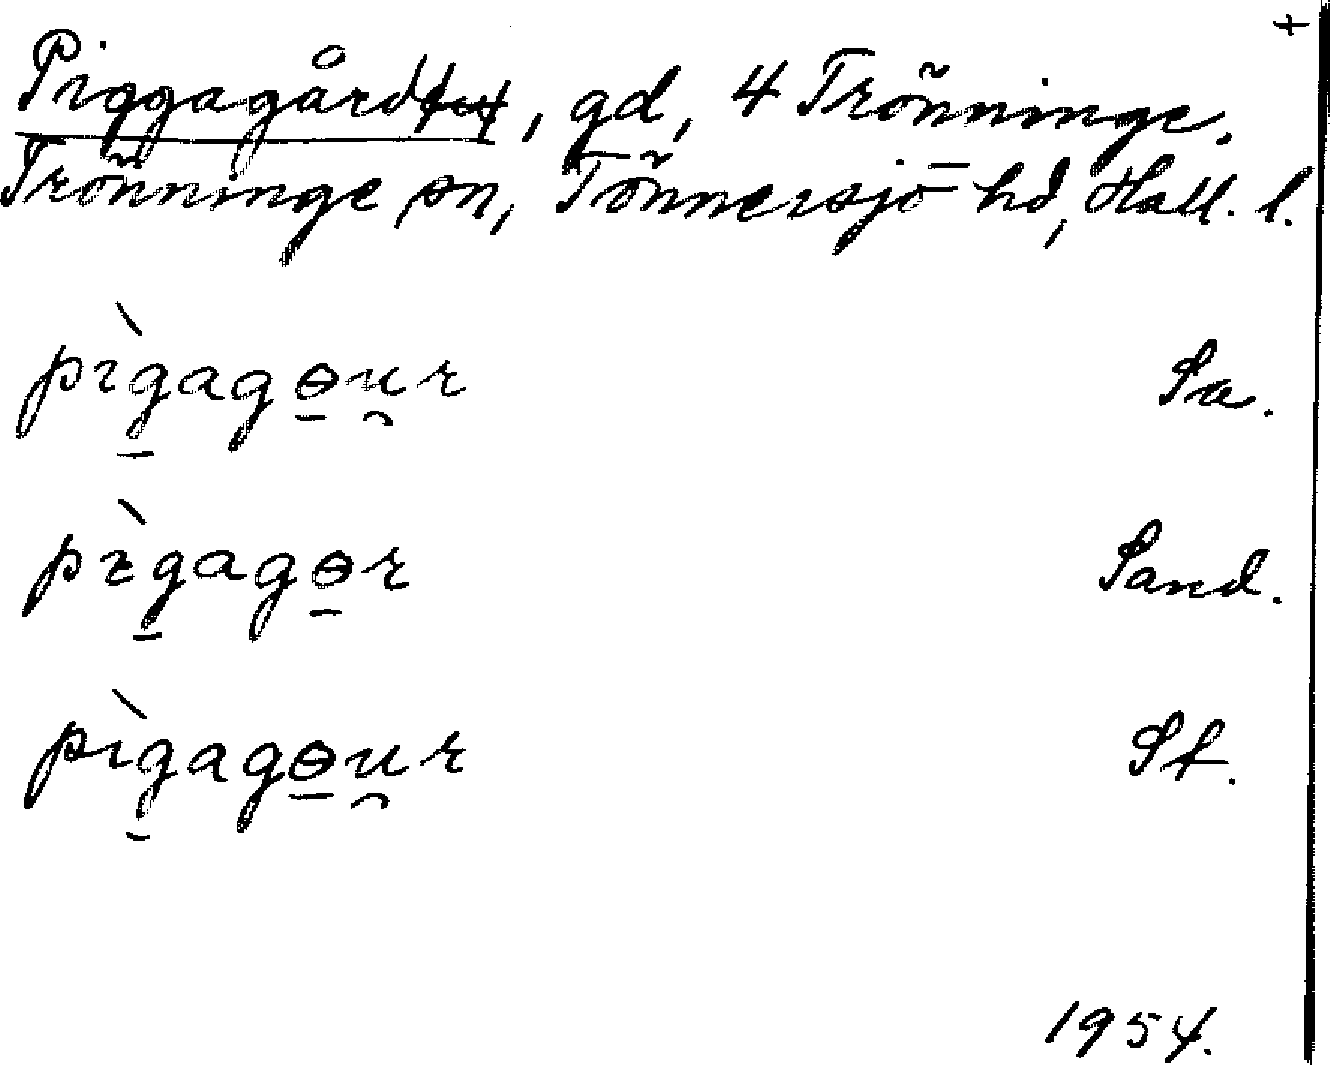 +
Piggagård, gd, 4 Trönninge.
Trönninge sn, Tönnersjö hd, Hall. l.
pìgagɵu̯r Sa.
pìgagɵr Sand.
pìgagɵu̯r St.
1954.